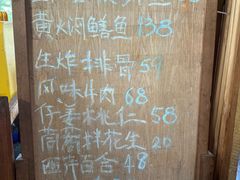 黄焖闷鳝鱼 138
生炸排骨 59
风味牛肉 68
仔姜桃仁 58
茼蒿拌花生 20
西芹百合 48